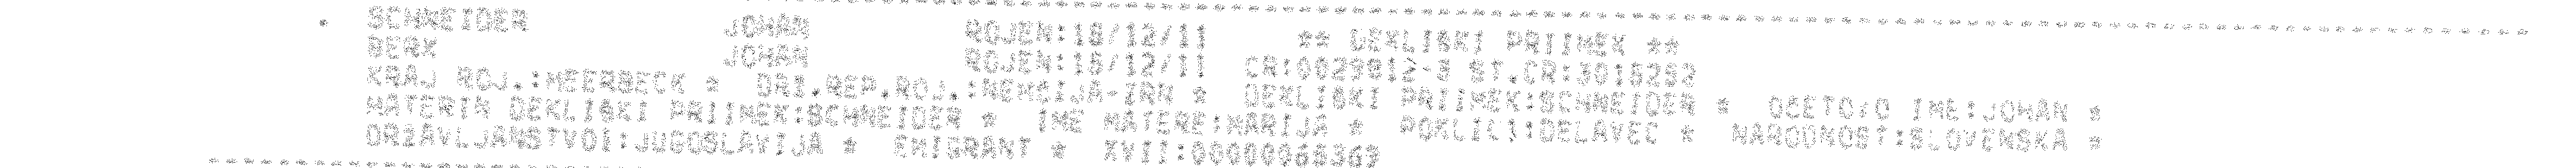 * SCHNEIDER JOHAN ROJEN:18/12/11 ** DEKLISKI PRIIMEK **
BERK JOHAN ROJEN:18/12/11 CR:0029912-3 ST.CR:3015252
KRAJ ROJ.:MEERBECK * DRZ.REP.ROJ.:NEMCIJA-ZRN * DEKLISKI PRIIMEK:SCHNEIDER * OCETOVO IME:JOHAN *
MATERIN DEKLISKI PRIIMEK:SCHNEIDER * IME MATERE:MARIJA * POKLIC1:DELAVEC * NARODNOST:SLOVENSKA *
DRZAVLJANSTVO1:JUGOSLAVIJA * EMIGRANT * XVII:00000068369